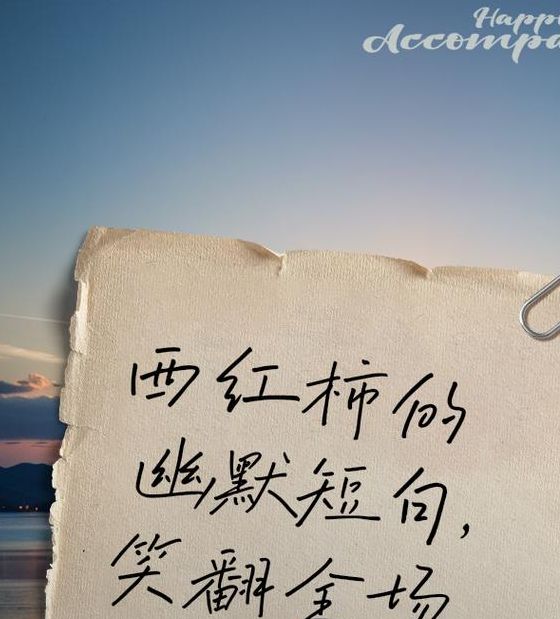 Happ
Accompa
西红柿的
幽默短句，
笑翻全场